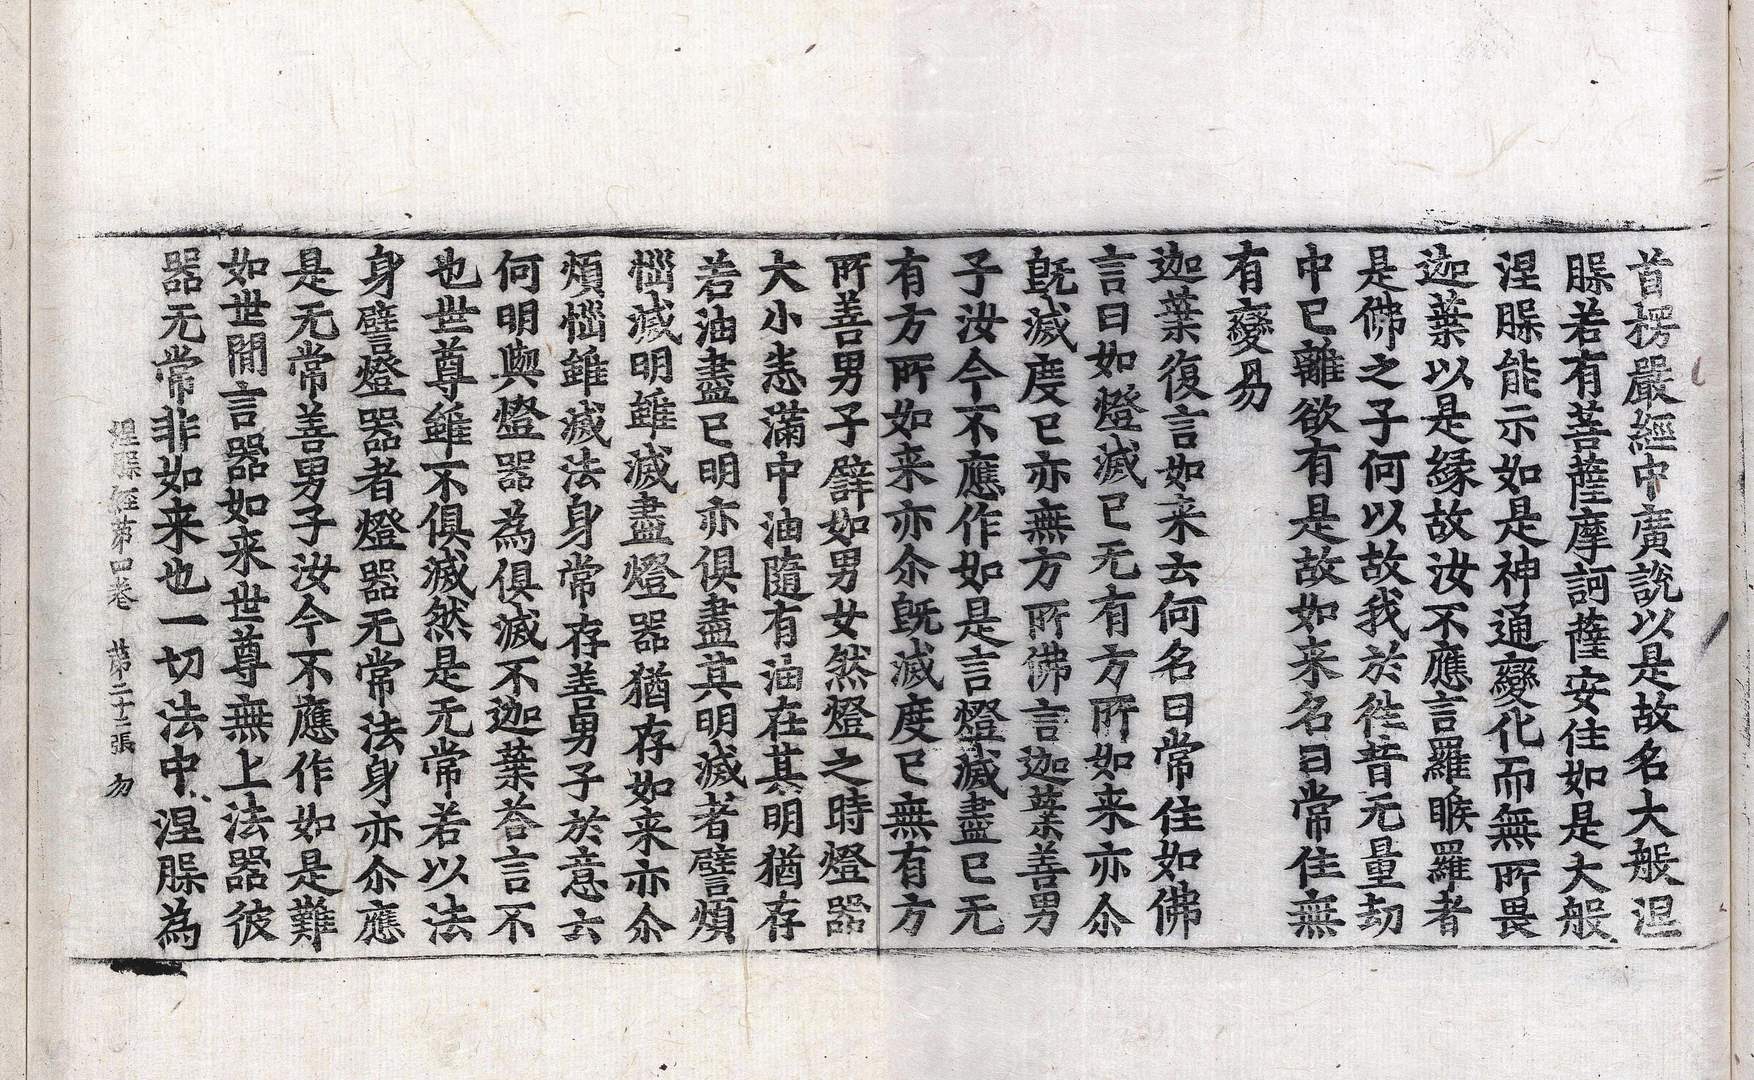 首楞嚴經中廣說以是故名大般涅
槃若有菩薩摩訶薩安住如是大般
涅槃能示如是神通變化而無所畏
迦葉以是緣故汝不應言羅睺羅者
是佛之子何以故我於徃昔无量劫
中已離欲有是故如来名曰常住無
有變易
迦葉復言如来云何名曰常住如佛
言曰如燈滅已无有方所如来亦尒
旣滅度已亦無方所佛言迦葉善男
子汝今不應作如是言燈滅盡已无
有方所如来亦尒旣滅度已無有方
所善男子譬如男女然燈之時燈器
大小悉滿中油隨有油在其明猶存
若油盡已明亦俱盡其明滅者譬煩
惱滅明雖滅盡燈器猶存如来亦尒
煩惱雖滅法身常存善男子於意云
何明與燈器為俱滅不迦葉荅言不
也世尊雖不俱滅然是无常若以法
身譬燈器者燈器无常法身亦尒應
是无常善男子汝今不應作如是難
如世間言器如来世尊無上法器彼
器无常非如来也一切法中涅槃為
涅槃經第四卷 第二十二張 勿